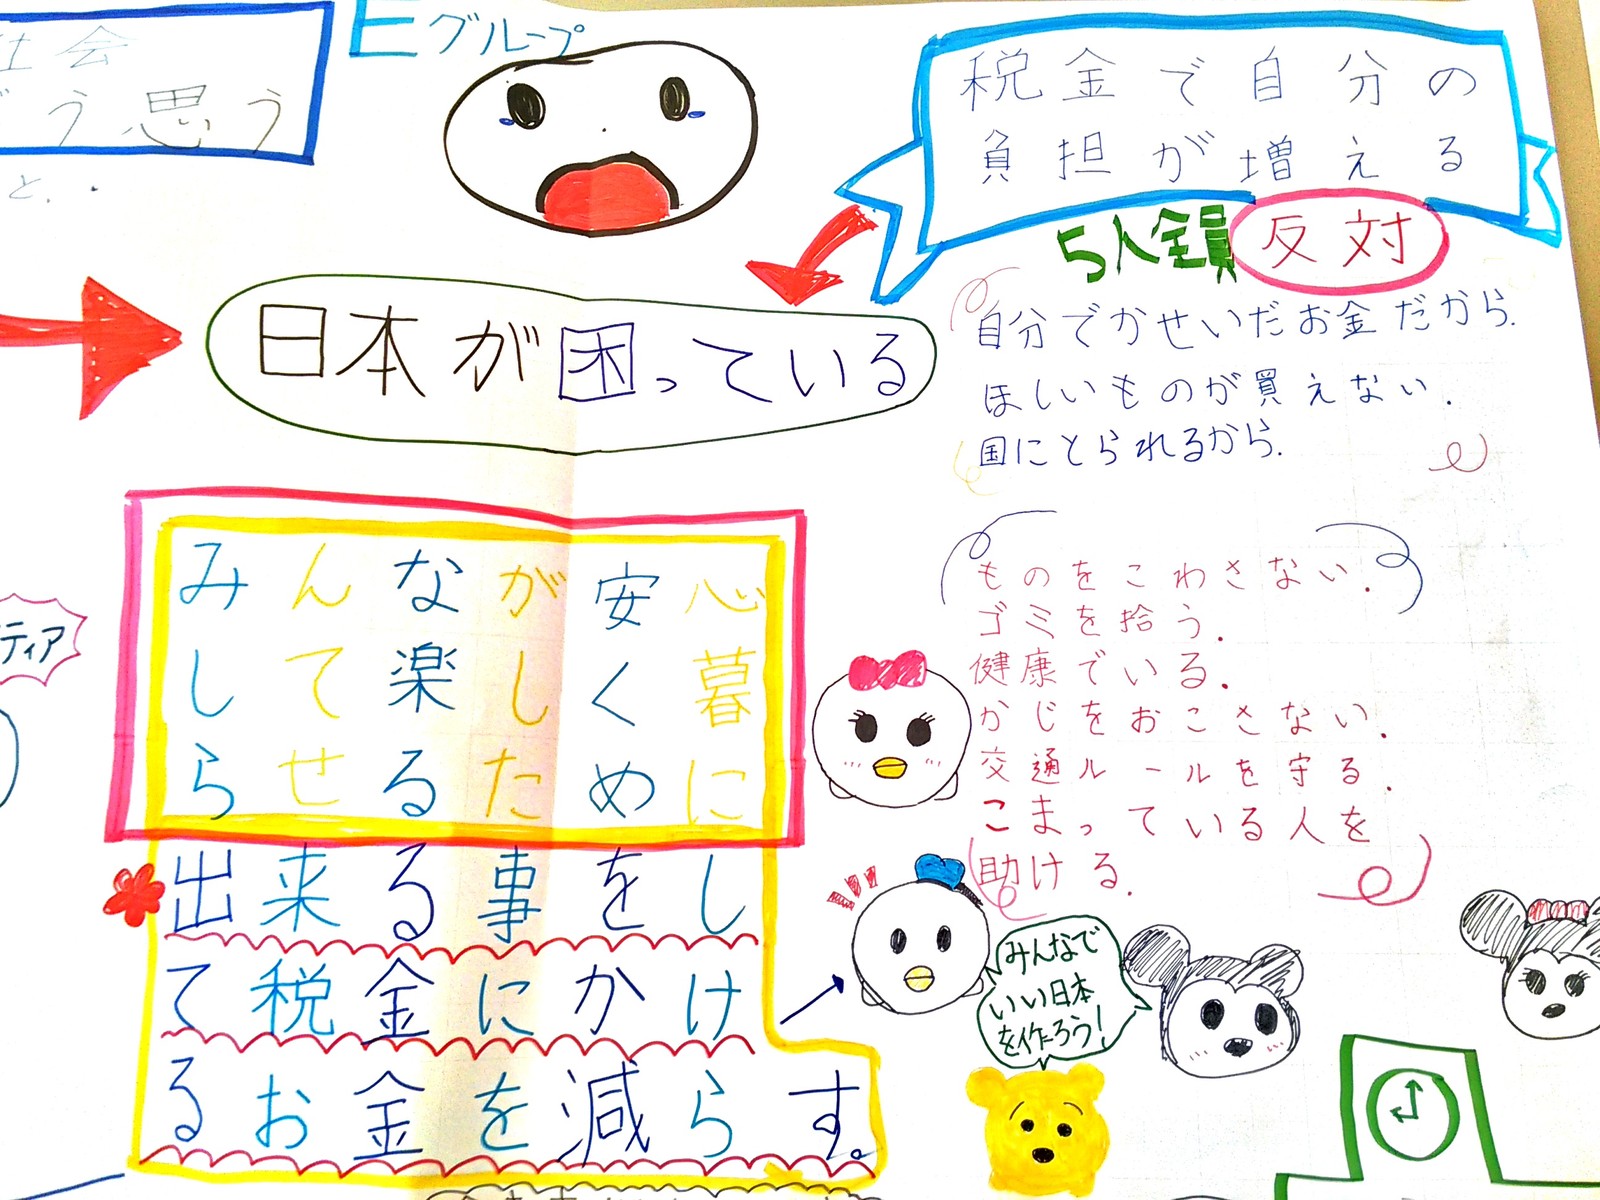 社会
どう思う
と、・・
Eグループ
税金で自分の
負担が増える
5人全員 反対
自分でかせいだお金だから.
ほしいものが買えない.
国にとられるから.
日本が困っている
みんなが安心
して楽しく暮
らせるために
出来る事をし
て税金にかけ
るお金を減らす。
ティア
ものをこわさない.
ゴミを拾う.
健康でいる.
かじをおこさない.
交通ルールを守る.
こまっている人を
助ける.
みんなで
いい日本
を作ろう!